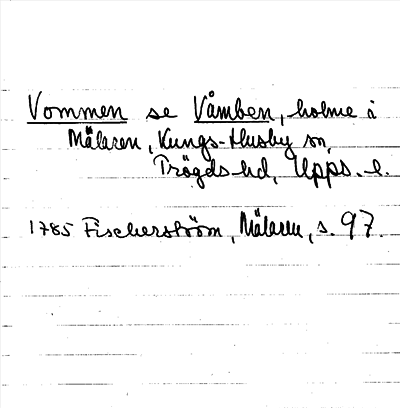 Vommen se Våmben, holme i
Mälaren, Kungs-Husby sn,
Trögds hd, Upps. l.
1785 Fischerström, Mälaren, s. 97.